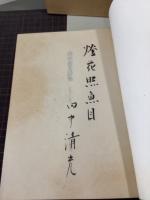 燈花照魚目
田中清光